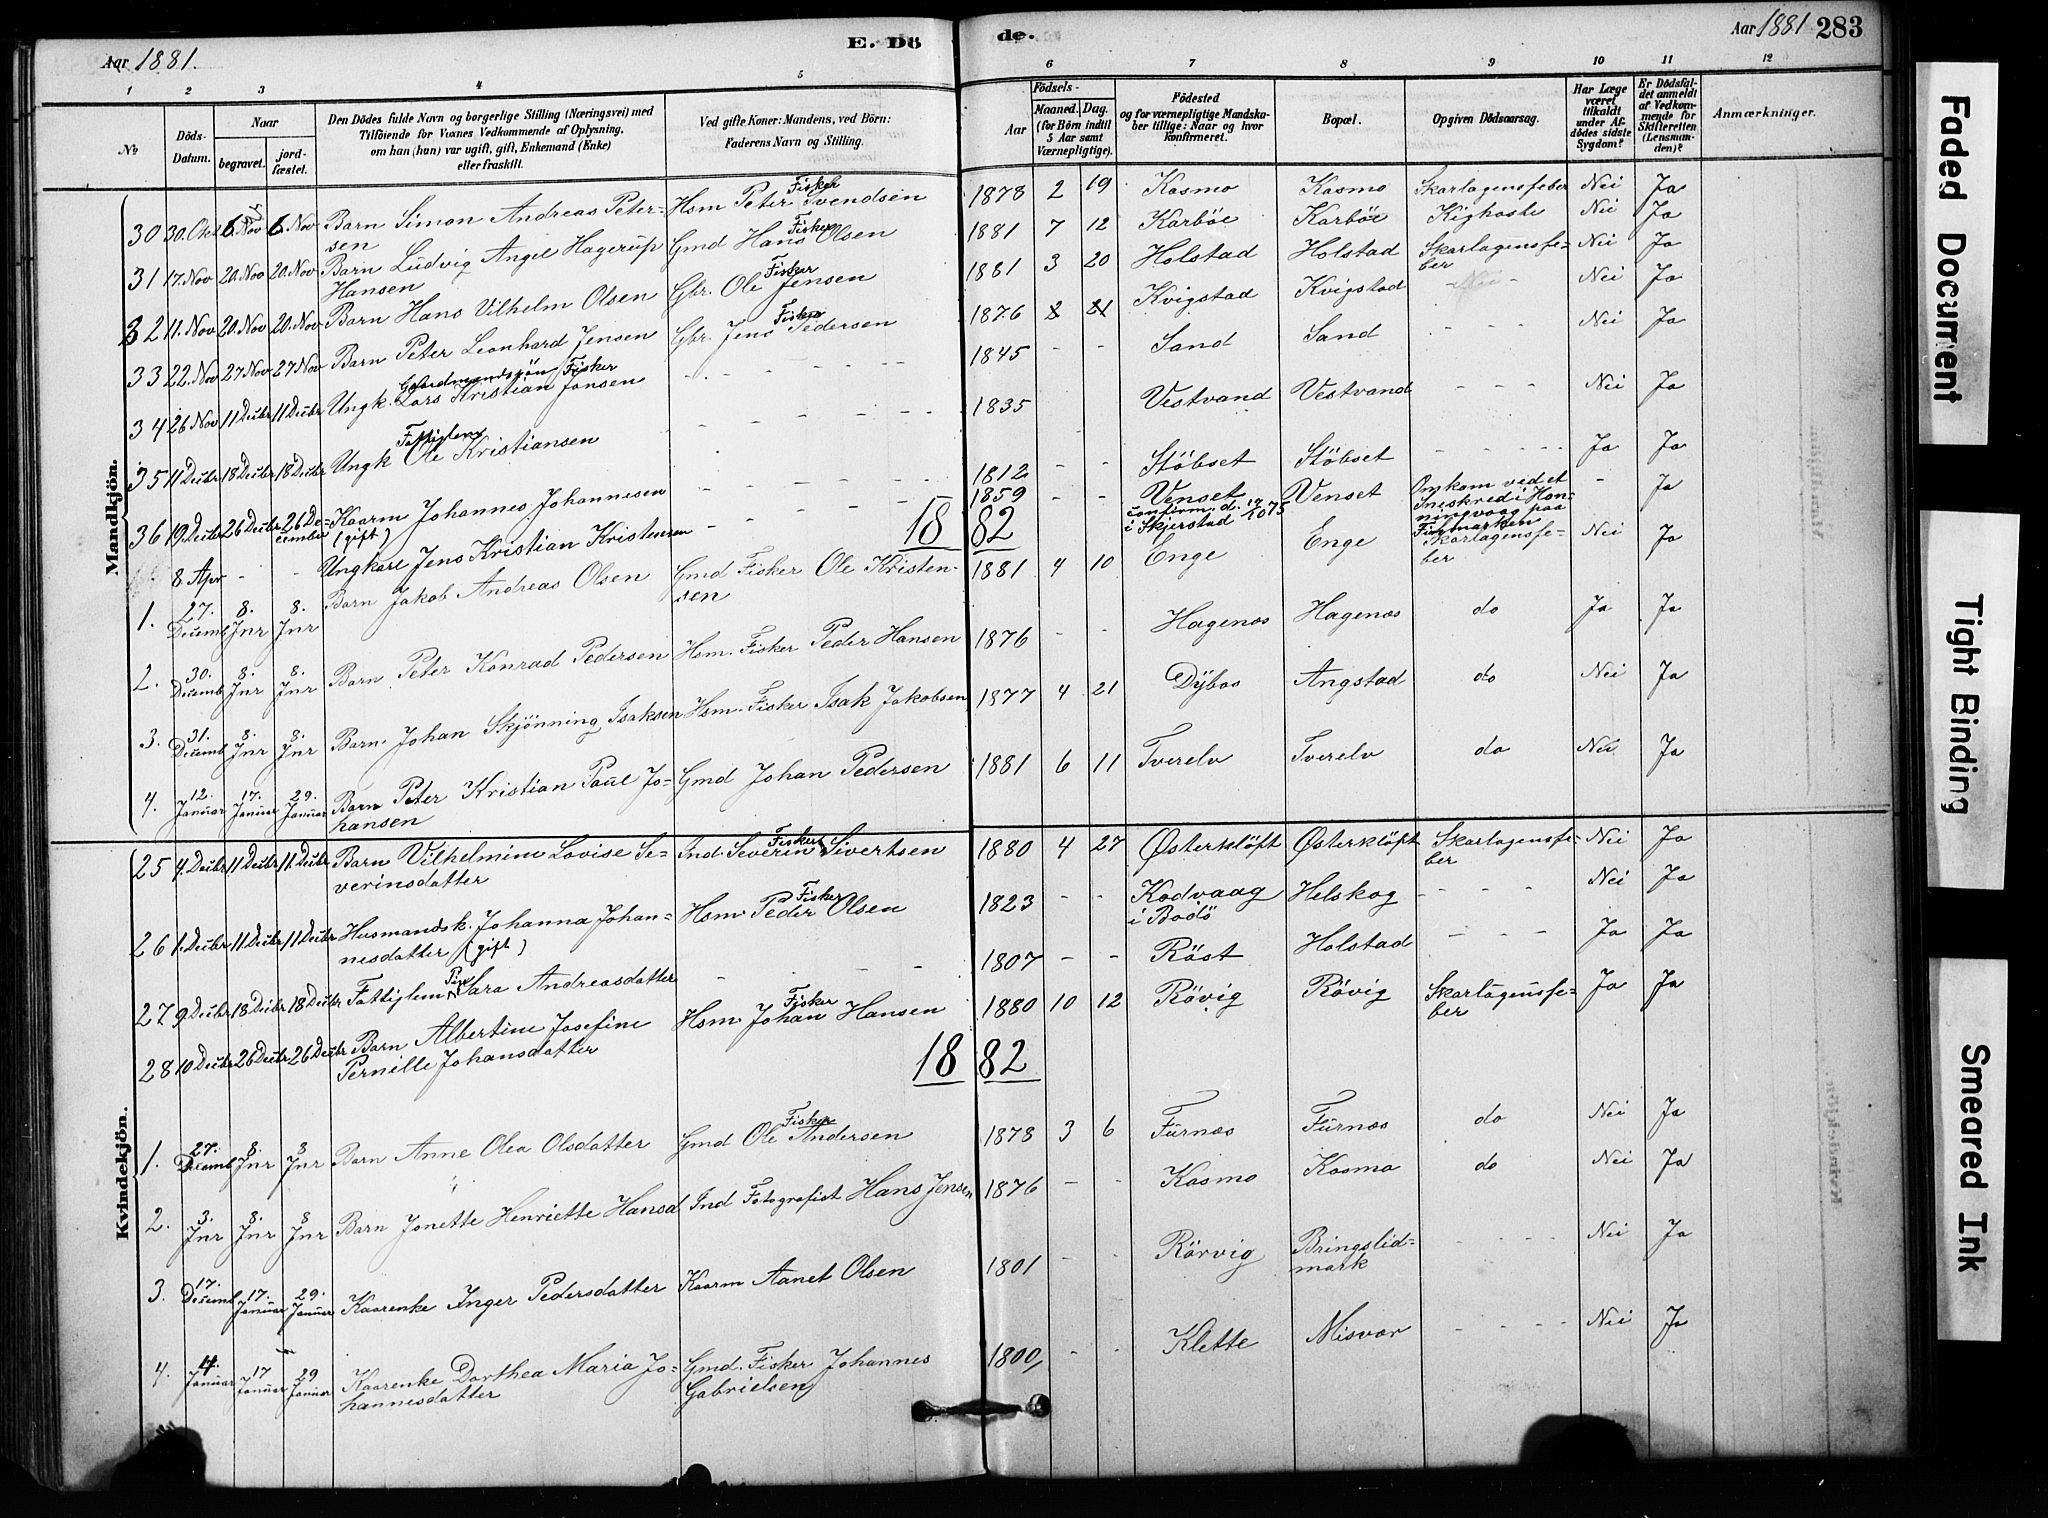 Aar 1881.
E. Dö
de.
Aar 1881
283
1 2 3 4 5 6 7 8 9 10 11 12
No
Döds-Datum.
Naar
begravet.
jordfæstet.
Den Dödes fulde Navn og borgerlige Stilling (Næringsvei) med
Tilföiende for Voxnes Vedkommende af Oplysning,
om han (hun) var ugift, gift, Enkemand (Enke)
eller fraskilt.
Ved gifte Koner: Mandens, ved Börn:
Faderens Navn og Stilling.
Födsels-
Aar
Maaned.
Dag.
(for Börn indtil
5 Aar samt
Værnepligtige).
Födested
og for værnepligtige Mandska-
ber tillige: Naar og hvor
konfirmeret.
Bopæl.
Opgiven Dödsaarsag.
Har Læge
været
tilkaldt
under Af-
dödes sidste
Sygdom?
Er Dödsfal-
det anmeldt
af Vedkom-
mende for
Skifteretten
(Lensman-
den)?
Anmærkninger.
Mandkjön.
30 30. Okt 6. Nov 6. Nov Barn Simon Andreas Peter- Hsm Peter Fisker Svendsen 1878 2 19 Kosmo Kosmo Skarlagensfeber Nei Ja
sen
31 17. Nov 20. Nov 20. Nov Barn Ludvig Angel Hagerup Gmd Hans Fisker Olsen 1881 7 12 Karböe Karböe Kighoste Nei Ja
Hansen
32 11. Nov 20. Nov 20. Nov Barn Hans Vilhelm Olsen Gbr. Ole Fisker Jensen 1881 3 20 Holstad Holstad Skarlagensfe- Nei Ja
ber
33 22. Nov 27 Nov 27 Nov Barn Peter Leonhard Jensen Gbr. Jens Fisker Pedersen 1876 2 21 Kvigstad Kvigstad - - Nei Ja
Gaardmandssön Fisker
34 26 Nov 11 Decbr 11 Decbr Ungk. Lars Kristian Jensen - - - - 1845 - - Sand Sand - - - Nei Ja
Fattiglem
35 11 Decbr 18 Decbr 18 Decbr Ungk Ole Kristiansen - - - - 1835 Vestvand Vestvand - - - Nei Ja
36 19. Decbr 26 Decbr 26 De- Kaarm Johannes Johannesen - - - - 1812 - - Stöbset Stöbset - - - - Ja Ja
cember (gift)
8 Apr - - Ungkarl Jens Kristian Kristensen - - - 1859 - - Venset Venset Omkom ved et - Ja
confirm. d.
i Skjerstad
Sneskred i Hon-
ningvaag paa
Finmarken
18 82
1. 27. Decemb 8. Jnr 8. Jnr Barn Jakob Andreas Olsen Gmd Fisker Ole Kristen- 1881 4 10 Enge Enge Skarlagensfe- Nei Ja
sen ber
2. 30. Decemb 8. Jnr 8. Jnr Barn Peter Konrad Pedersen Hsm. Fisker Peder Hansen 1876 - - Hagenæs Hagenæs do Ja Ja
3. 31. Decemb 8. Jnr 8. Jnr Barn Johan Skjönning Isaksen Hsm. Fisker Isak Jakobsen 1877 4 21 Dybos Angstad do Nei Ja
4. 12. Januar 17. Januar 29. Januar Barn Peter Kristian Paul Jo- Gmd Johan Pedersen 1881 6 11 Tverelv Tverelv do Nei Ja
hansen
Kvindekjön.
25 4. Decbr 11 Decbr 11 Decbr Barn Vilhelmine Lovise Se- Ind. Severin Fisker Sivertsen 1880 4 27 Østerklöft Østerklöft Skarlagensfe- Nei Ja
verinsdatter ber
26 1. Decbr 11 Decbr 11 Decbr Husmandsk. Johanna Johan- Hsm. Peder Fisker Olsen 1823 - - Kodvaag Helskog - - - Nei Ja
nesdatter (gift) i Bodö
27 9 Decbr 18 Decbr 18 Decbr Fattiglem Pige Sara Andreasdatter - - - - 1807 - - Röst Holstad - - - Ja Ja
28 10 Decbr 26 Decbr 26 Decbr Barn Albertine Josefine Hsm. Johan Fisker Hansen 1880 10 12 Rövig Rövig Skarlagensfe- Ja Ja
Pernille Johansdatter ber
18 82
1. 27. Decemb 8. Jnr 8 Jnr Barn Anne Olea Olsdatter Gmd Ole Fisker Andersen 1878 3 6 Furnæs Furnæs do Nei Ja
2. 3. Jnr 8. Jnr 8 Jnr Barn Jonette Henriette Hansd Ind Fotografist Hans Jensen 1876 - - Kosmo Kosmo do Nei Ja
3. 17. Decemb 17. Januar 29. Januar Kaarenke Inger Pedersdatter Kaarm Aanet Olsen 1801 - - Rörvig Bringslid- - - - - Nei Ja
mark
4. 4 Januar 17 Januar 29 Januar Kaarenke Dorthea Maria Jo- Gmd. Fisker Johannes 1800 - - Klette Misvær - - - - Nei Ja
hannesdatter Gabrielsen
Faded Document
Tight Binding
Smeared Ink